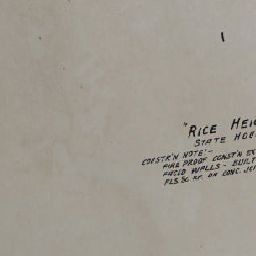 "RICE HEI
STATE HOS
CONSTR'N NOTE:-
FIRE PROOF CONST'N EX
FACED WALLS - BUILT
FLS. &. RF. ON CONC.